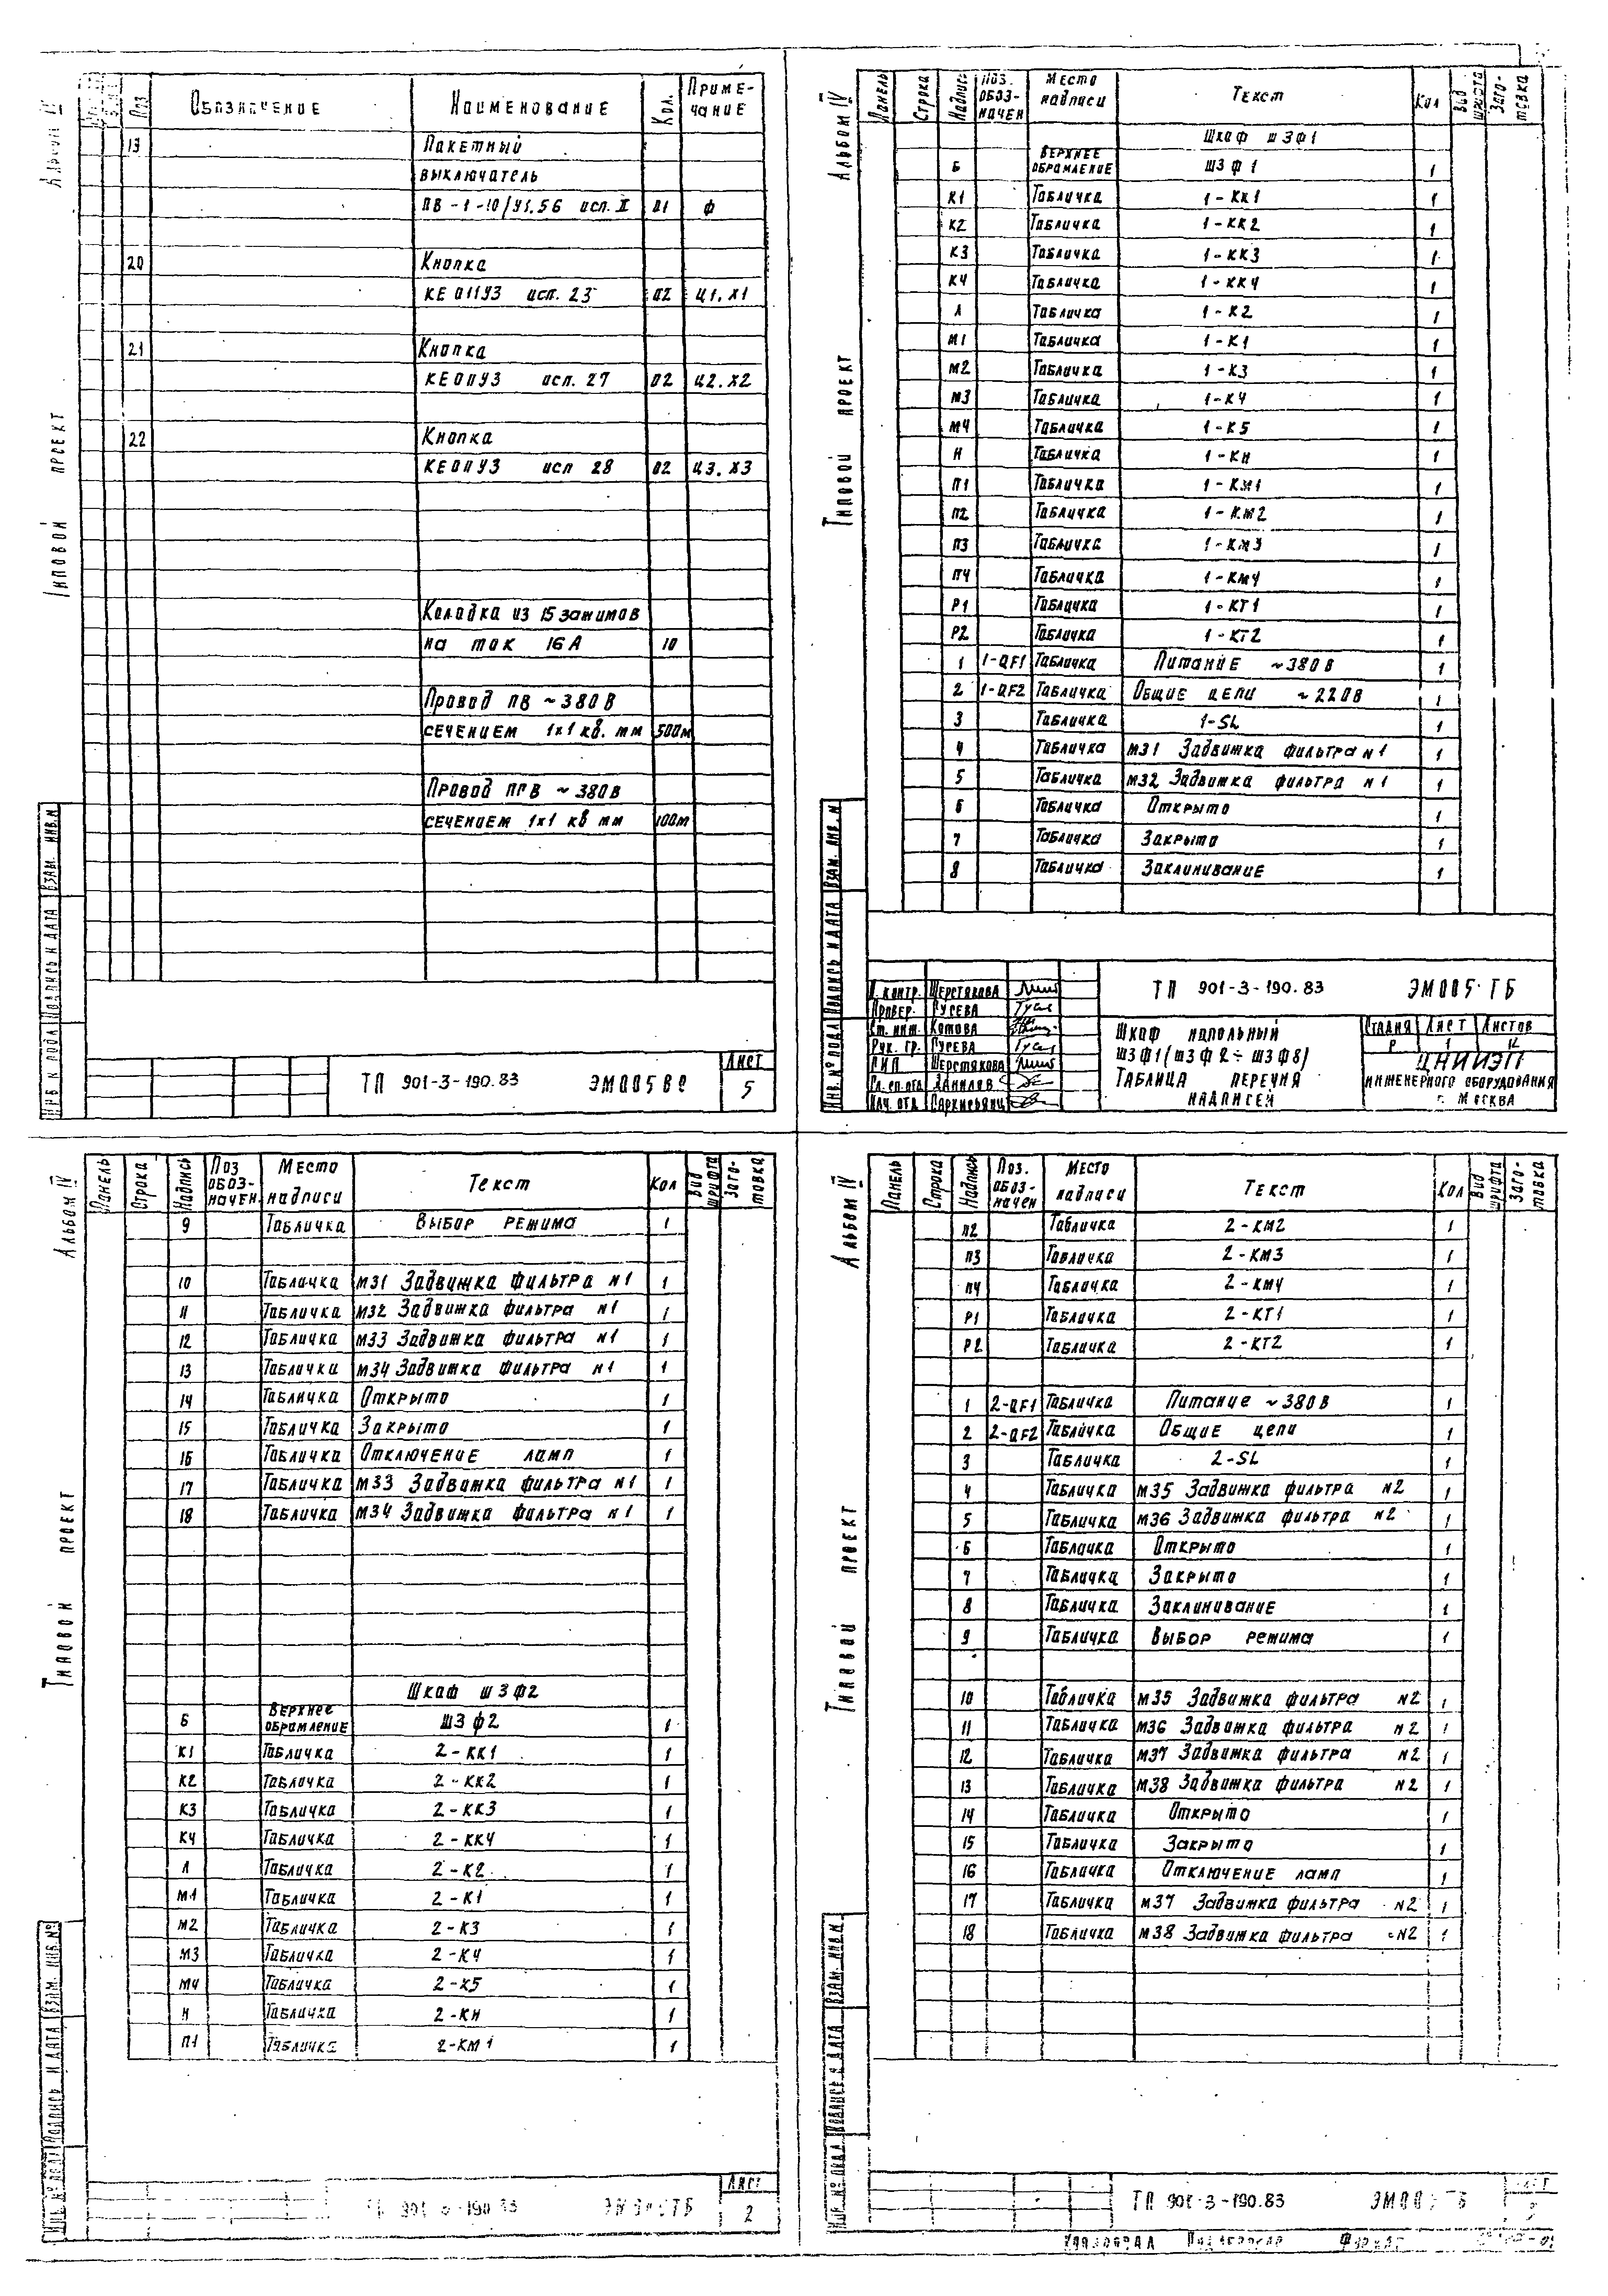 Альбом IV
Типовой проект
Поз. Обозначение Наименование Кол. Примечание
13 Пакетный
выключатель
ПВ-1-10/У1.56 исп. II 01 Ф
20 Кнопка
КЕ011У3 исп. 23 02 Ц1.Х1
21 Кнопка
КЕ011У3 исп. 27 02 Ц2.Х2
22 Кнопка
КЕ011У3 исп 28 02 Ц3.Х3
Колодка из 15 зажимов
на ток 16А 10
Провод ПВ ~380В
сечением 1х1 кв. мм 500м
Провод ПГВ ~380В
сечением 1х1 кв мм 100м
Инв N подл Подпись и дата Взам. инв.N
ТП 901-3-190.83 ЭМ005ВО Лист 5
Альбом IV
Типовой проект
Панель Строка Надпись Поз. обозначен Место надписи Текст Кол Вид шрифта Заготовка
Шкаф Ш3Ф1
Б Верхнее обрамление Ш3Ф1 1
К1 Табличка 1-КК1 1
К2 Табличка 1-КК2 1
К3 Табличка 1-КК3 1
К4 Табличка 1-КК4 1
Л Табличка 1-К2 1
М1 Табличка 1-К1 1
М2 Табличка 1-К3 1
М3 Табличка 1-К4 1
М4 Табличка 1-К5 1
Н Табличка 1-КН 1
П1 Табличка 1-КМ1 1
П2 Табличка 1-КМ2 1
П3 Табличка 1-КМ3 1
П4 Табличка 1-КМ4 1
Р1 Табличка 1-КТ1 1
Р2 Табличка 1-КТ2 1
1 1-QF1 Табличка Питание ~380В 1
2 1-QF2 Табличка Общие цепи ~220В 1
3 Табличка 1-SL 1
4 Табличка М31 Задвижка фильтра N1 1
5 Табличка М32 Задвижка фильтра N1 1
6 Табличка Открыто 1
7 Табличка Закрыто 1
8 Табличка Заклинивание 1
Инв. N° подл Подпись и дата Взам. инв. N
Н. контр. Шерстякова
Провер. Гусева
Ст. инж. Котова
Рук. гр. Гусева
ГИП Шерстякова
Гл. сп. отд. Данилов
Нач. отд
ТП 901-3-190.83 ЭМ005.ТБ
Шкаф напольный
Ш3Ф1(Ш3Ф2÷Ш3Ф8)
Таблица перечня
надписей
Стадия Лист Листов
Р 1 12
ЦНИИЭП
инженерного оборудования
г. Москва
Альбом IV
Типовой проект
Панель Строка Надпись Поз обозначен Место надписи Текст Кол Вид шрифта Заготовка
9 Табличка Выбор режима 1
10 Табличка М31 Задвижка фильтра N1 1
11 Табличка М32 Задвижка фильтра N1 1
12 Табличка М33 Задвижка фильтра N1 1
13 Табличка М34 Задвижка фильтра N1 1
14 Табличка Открыто 1
15 Табличка Закрыто 1
16 Табличка Отключение ламп 1
17 Табличка М33 Задвижка фильтра N1 1
18 Табличка М34 Задвижка фильтра N1 1
Шкаф Ш3Ф2
Б Верхнее обрамление Ш3Ф2 1
К1 Табличка 2-КК1 1
К2 Табличка 2-КК2 1
К3 Табличка 2-КК3 1
К4 Табличка 2-КК4 1
Л Табличка 2-К2 1
М1 Табличка 2-К1 1
М2 Табличка 2-К3 1
М3 Табличка 2-К4 1
М4 Табличка 2-К5 1
Н Табличка 2-КН 1
П1 Табличка 2-КМ1 1
Подпись и дата Взам. инв. N°
901-3-190.83 Лист 2
Альбом IV
Типовой проект
Панель Строка Надпись Поз. обозначен Место надписи Текст Кол Вид шрифта Заготовка
П2 Табличка 2-КМ2 1
П3 Табличка 2-КМ3 1
П4 Табличка 2-КМ4 1
Р1 Табличка 2-КТ1 1
Р2 Табличка 2-КТ2 1
1 2-QF1 Табличка Питание ~380В 1
2 2-QF2 Табличка Общие цепи 1
3 Табличка 2-SL 1
4 Табличка М35 Задвижка фильтра N2 1
5 Табличка М36 Задвижка фильтра N2 1
6 Табличка Открыто 1
7 Табличка Закрыто 1
8 Табличка Заклинивание 1
9 Табличка Выбор режима 1
10 Табличка М35 Задвижка фильтра N2 1
11 Табличка М36 Задвижка фильтра N2 1
12 Табличка М37 Задвижка фильтра N2 1
13 Табличка М38 Задвижка фильтра N2 1
14 Табличка Открыто 1
15 Табличка Закрыто 1
16 Табличка Отключение ламп 1
17 Табличка М37 Задвижка фильтра N2 1
18 Табличка М38 Задвижка фильтра N2 1
Инв. N° подл Подпись и дата Взам. инв.N
ТП 901-3-190.83
Копировал Формат